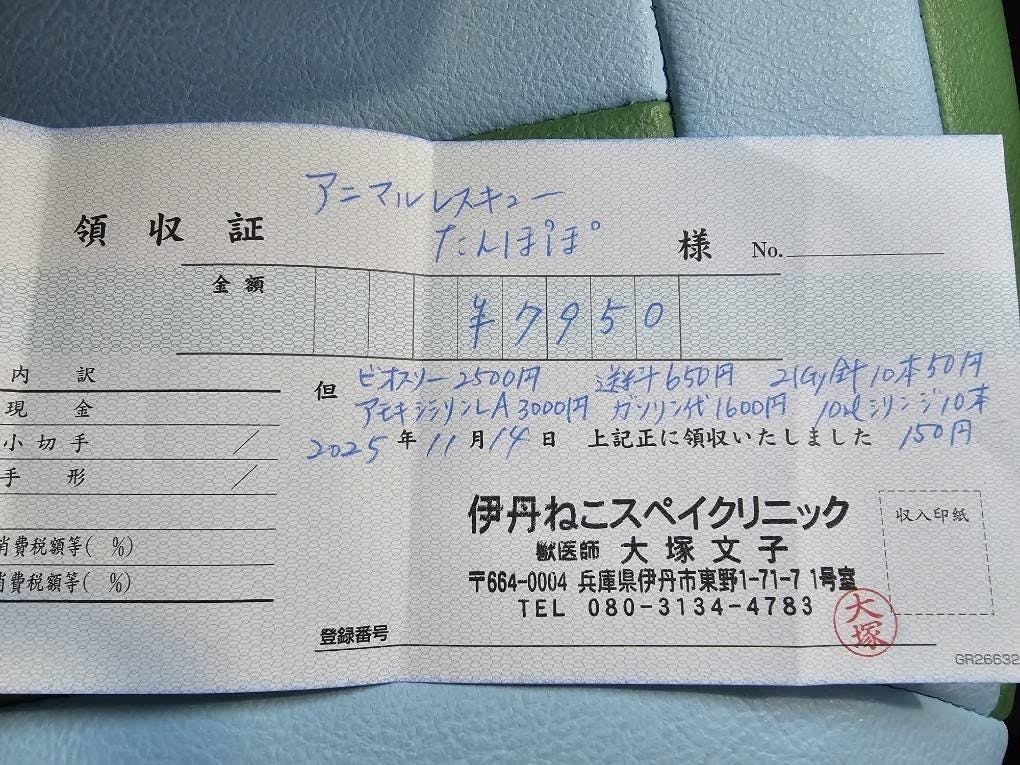 アニマルレスキュー
たんぽぽ
領収証 様 No.
金額 ¥7950
但 ビオスリー2500円 送料650円 21Gy針10本50円
アモキシシリンLA3000円 ガソリン代1600円 10mlシリンジ10本
150円
2025年11月14日 上記正に領収いたしました
内訳
現金
小切手 /
手形 /
消費税額等( %)
消費税額等( %)
伊丹ねこスペイクリニック
獣医師 大塚文子
〒664-0004 兵庫県伊丹市東野1-71-7 1号室
TEL 080-3134-4783
大塚
収入印紙
登録番号
GR26632